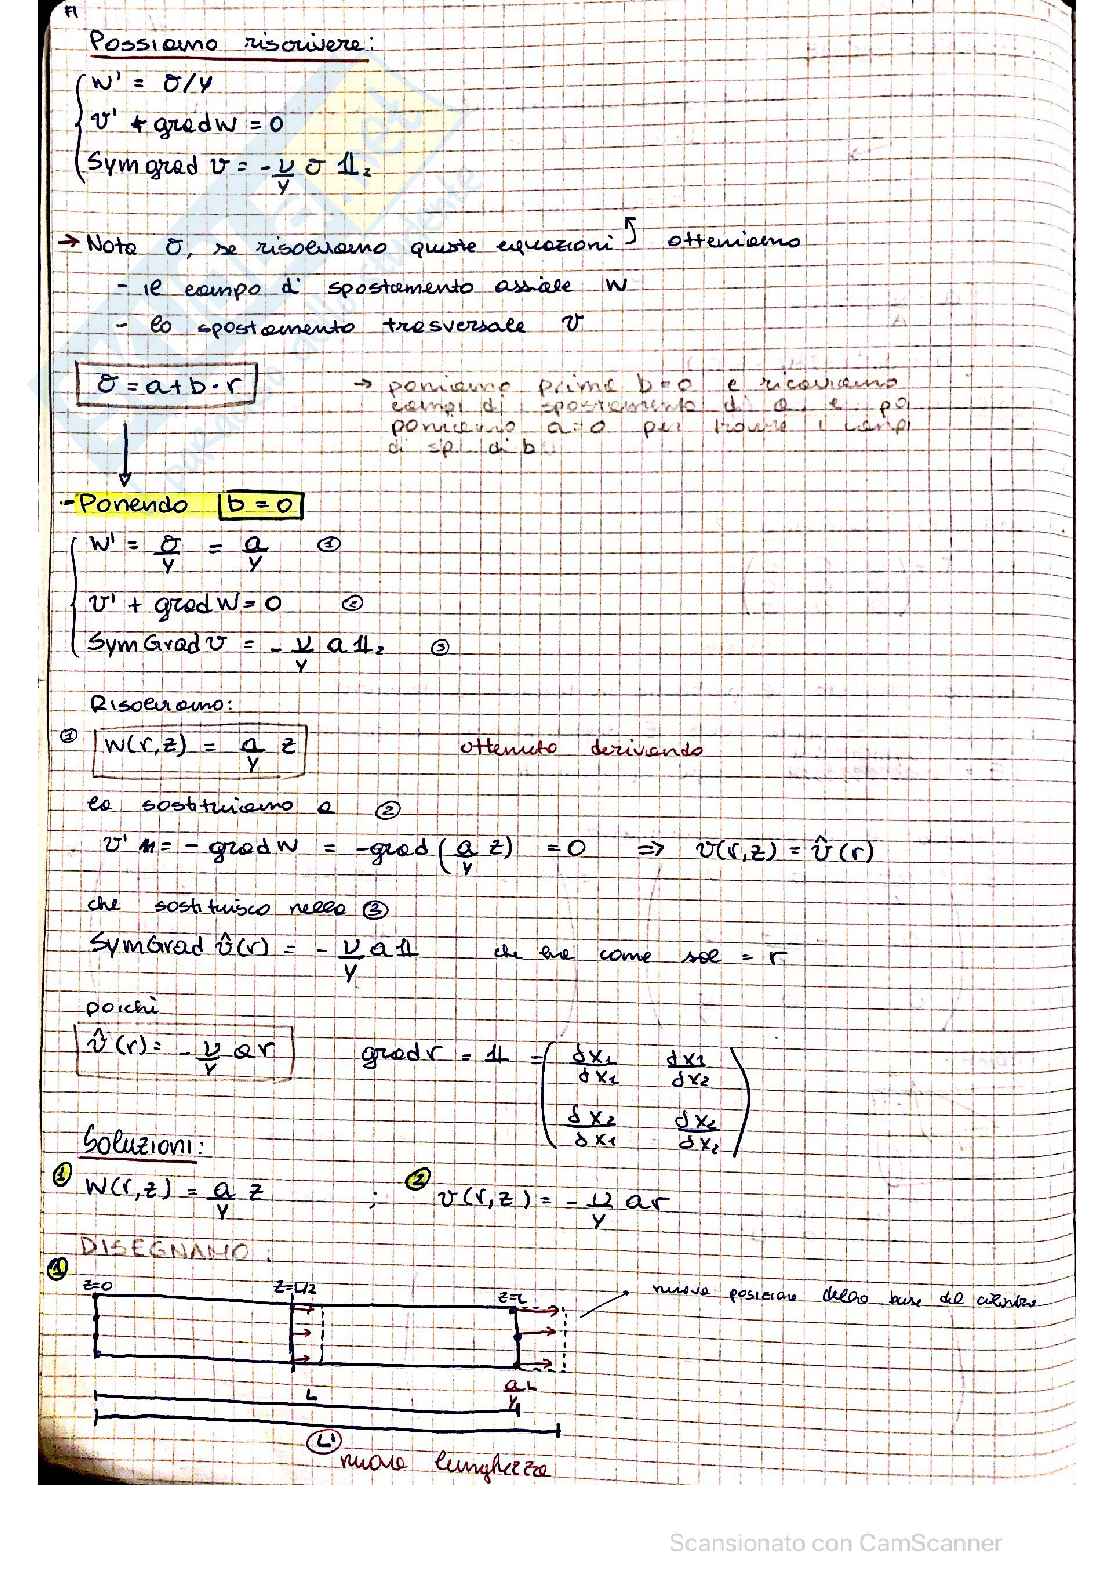 Possiamo riscrivere:
w' = σ/Y
v' + grad w = 0
Sym grad v = - ν/Y σ 𝟙₂
→ Nota σ, se risolviamo queste equazioni ↰ otteniamo
- il campo di spostamento assiale w
- lo spostamento trasversale v
σ = a + b · r → poniamo prima b=0 e ricaviamo
campi di spostamento di a, e poi
poniamo a=0 per trovare i campi
di sp. di b
- Ponendo b = 0
w' = σ/Y = a/Y ①
v' + grad w = 0 ②
SymGrad v = - ν/Y a 𝟙₂ ③
Risolviamo:
① w(r,z) = a/Y z ottenuto derivando
lo sostituiamo a ②
v' = - grad w = -grad (a/Y z) = 0 ⇒ v(r,z) = v̂(r)
che sostituisco nella ③
SymGrad v̂(r) = - ν/Y a 𝟙 che ha come sol = r
poichè
v̂(r) = - ν/Y a r grad r = 𝟙 = ( δx₁/δx₁ δx₁/δx₂
δx₂/δx₁ δx₂/δx₂ )
Soluzioni:
① w(r,z) = a/Y z ; ② v(r,z) = - ν/Y a r
DISEGNAMO:
①
z=0 z=L/2 z=L nuova posizione della base del cilindro
L a/Y L
L'
nuova lunghezza
Scansionato con CamScanner